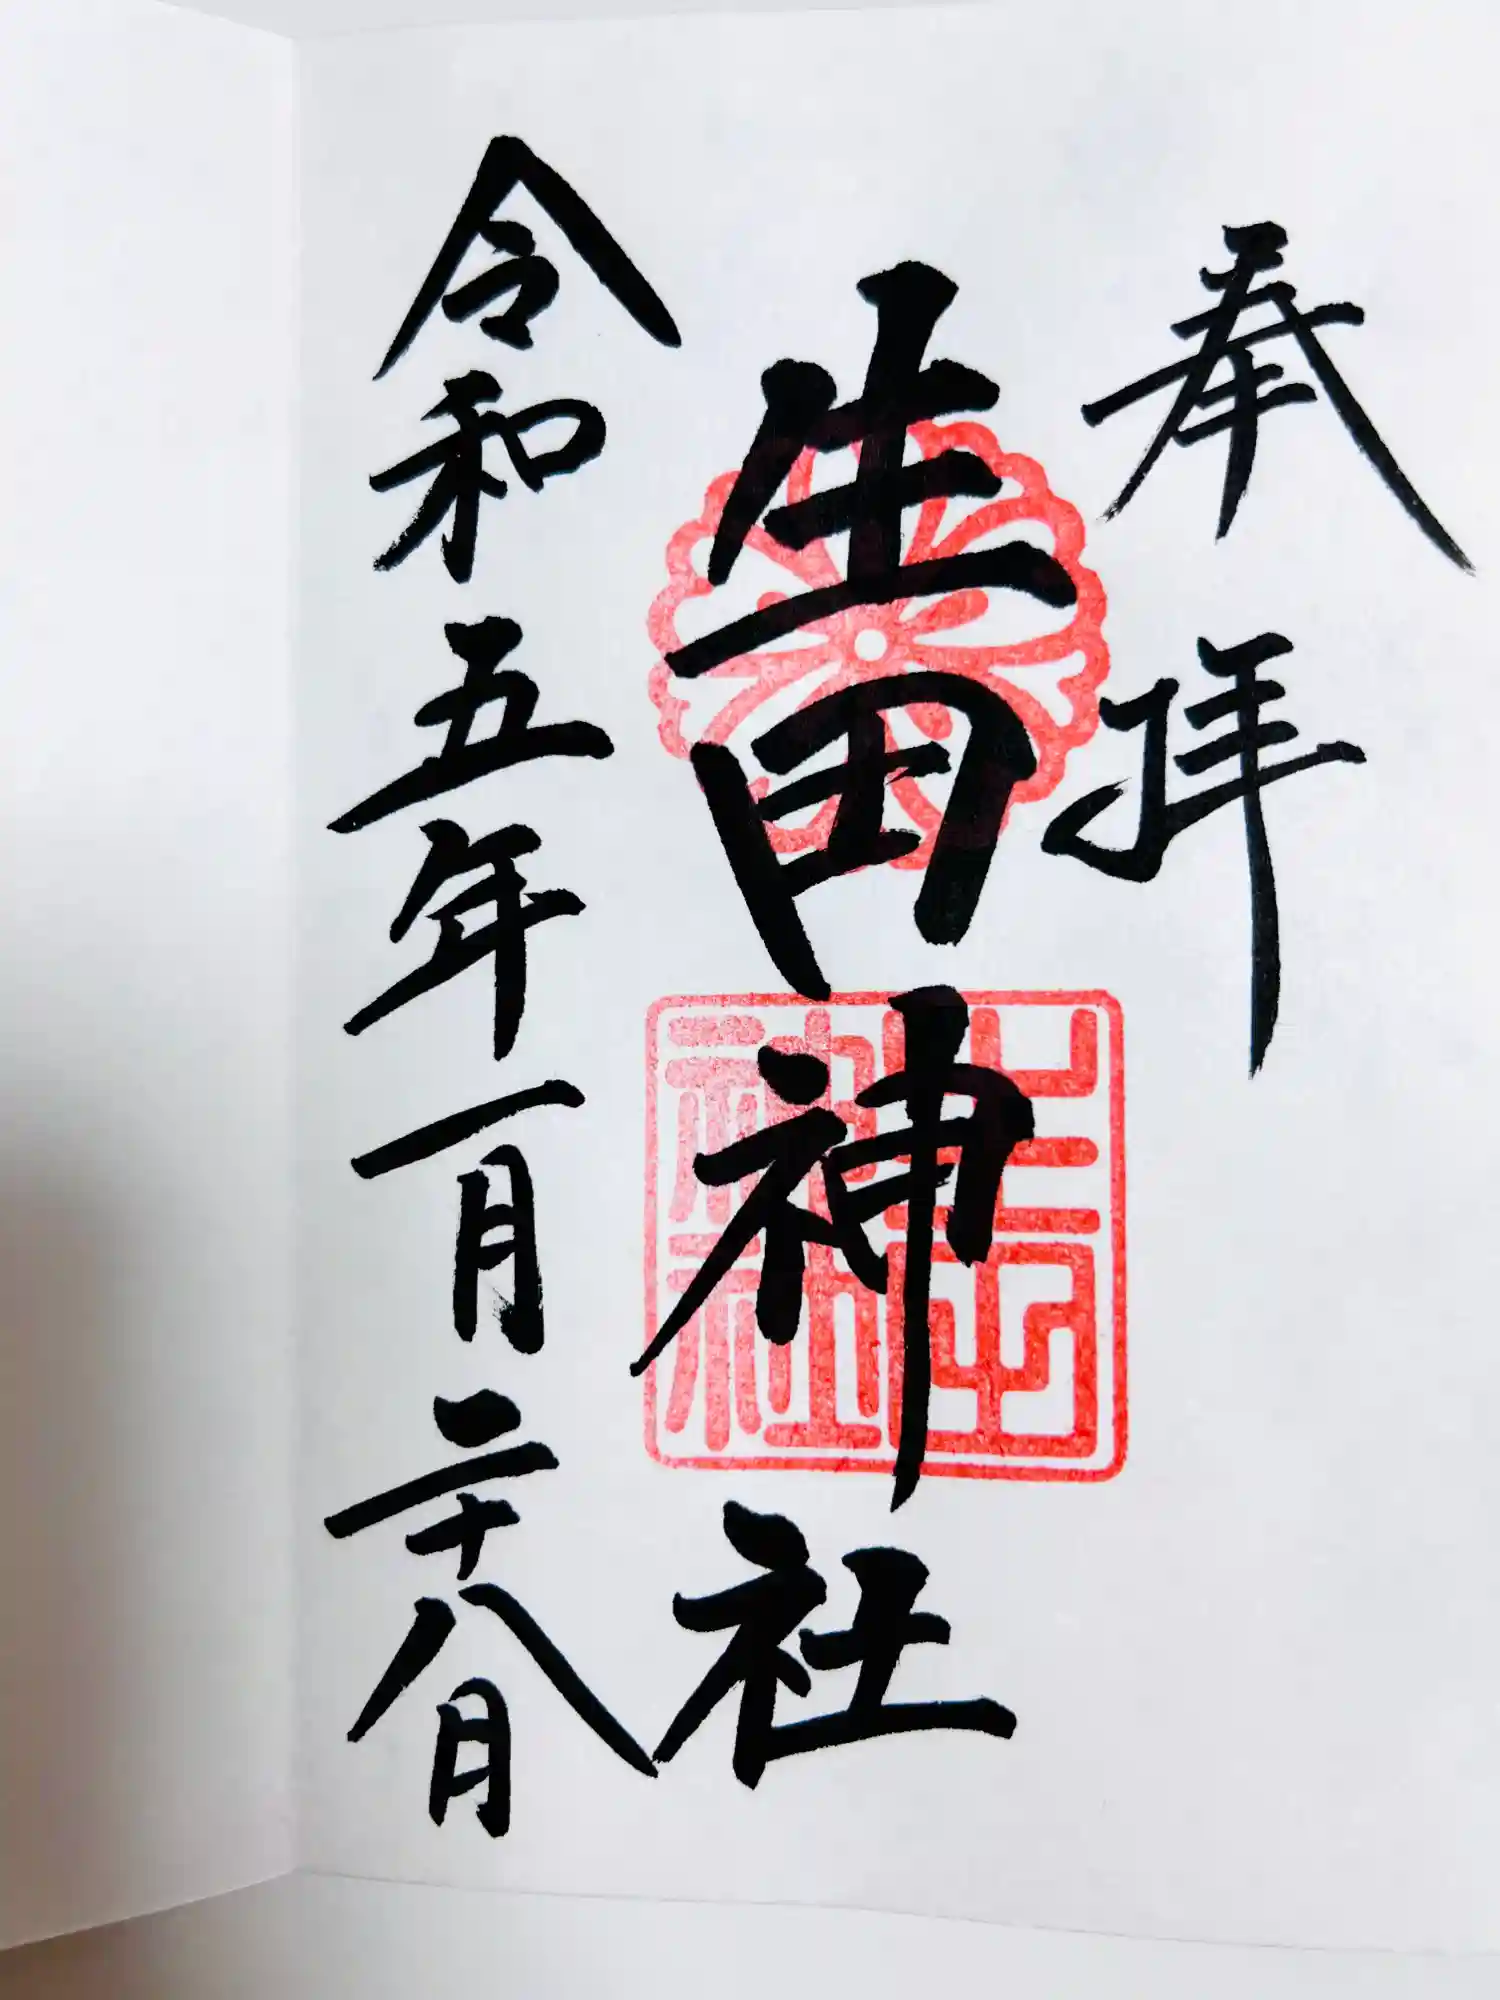 奉拝
生田神社
生田神社
令和五年一月二十八日